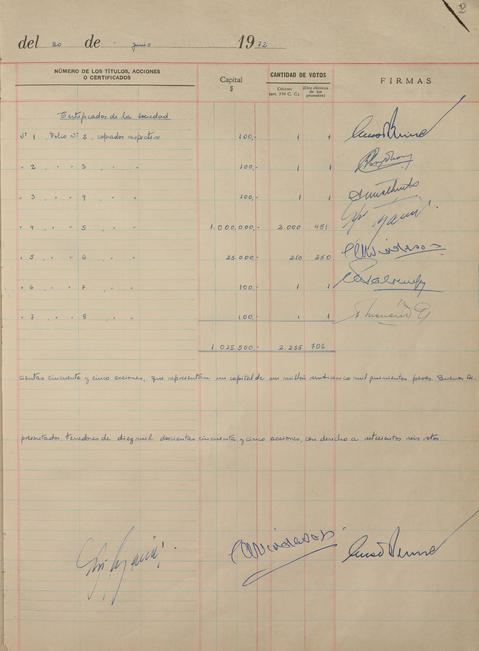 2
del 20 de junio 1972
NÚMERO DE LOS TÍTULOS, ACCIONES
O CERTIFICADOS
Capital
$
CANTIDAD DE VOTOS
FIRMAS
Certificados de la sociedad
Nº 1 Folio Nº 2, copiador respectivo 100,- 1 1
" 2 " " 3 " " 100,- 1 1
" 3 " " 4 " " 100,- 1 1
" 4 " " 5 " " 1.000.000,- 2.000 451
" 5 " " 6 " " 25.000,- 250 250
" 6 " " 7 " " 100,- 1 1
" 7 " " 8 " " 100,- 1 1
1.025.500,- 2.255 706
cientas cincuenta y cinco acciones, que representan un capital de un millón veinticinco mil quinientos pesos. Buenos
presentados, tenedores de diez mil doscientas cincuenta y cinco acciones, con derecho a setecientos seis votos